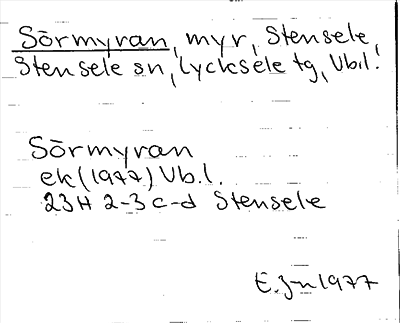 Sörmyran, myr, Stensele,
Stensele sn, Lycksele tg, Vbl.
Sörmyran
ek (1977) Vb.l.
23H 2-3 c-d Stensele
E. J-n 1977